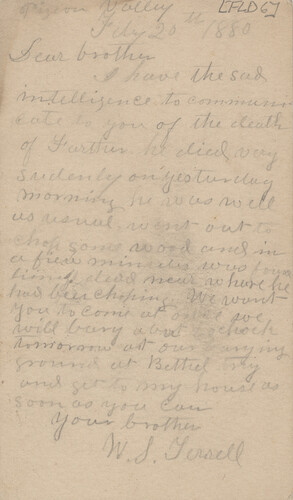 Pigeon Valley [FLD6]
Feby 20th 1880
Dear brother
I have the sad
intelligence to communi
cate to you of the death
of Farther he died very
suddenly on yesturday
morning he was well
as usual went out to
chop some wood and in
a few minutes was
dead near where he
had been choping We want
you to come at once we
will bury about
tomorrow at our burying
ground at Bethel try
and get to my house as
soon as you can
Your brother
W. S. Terrell